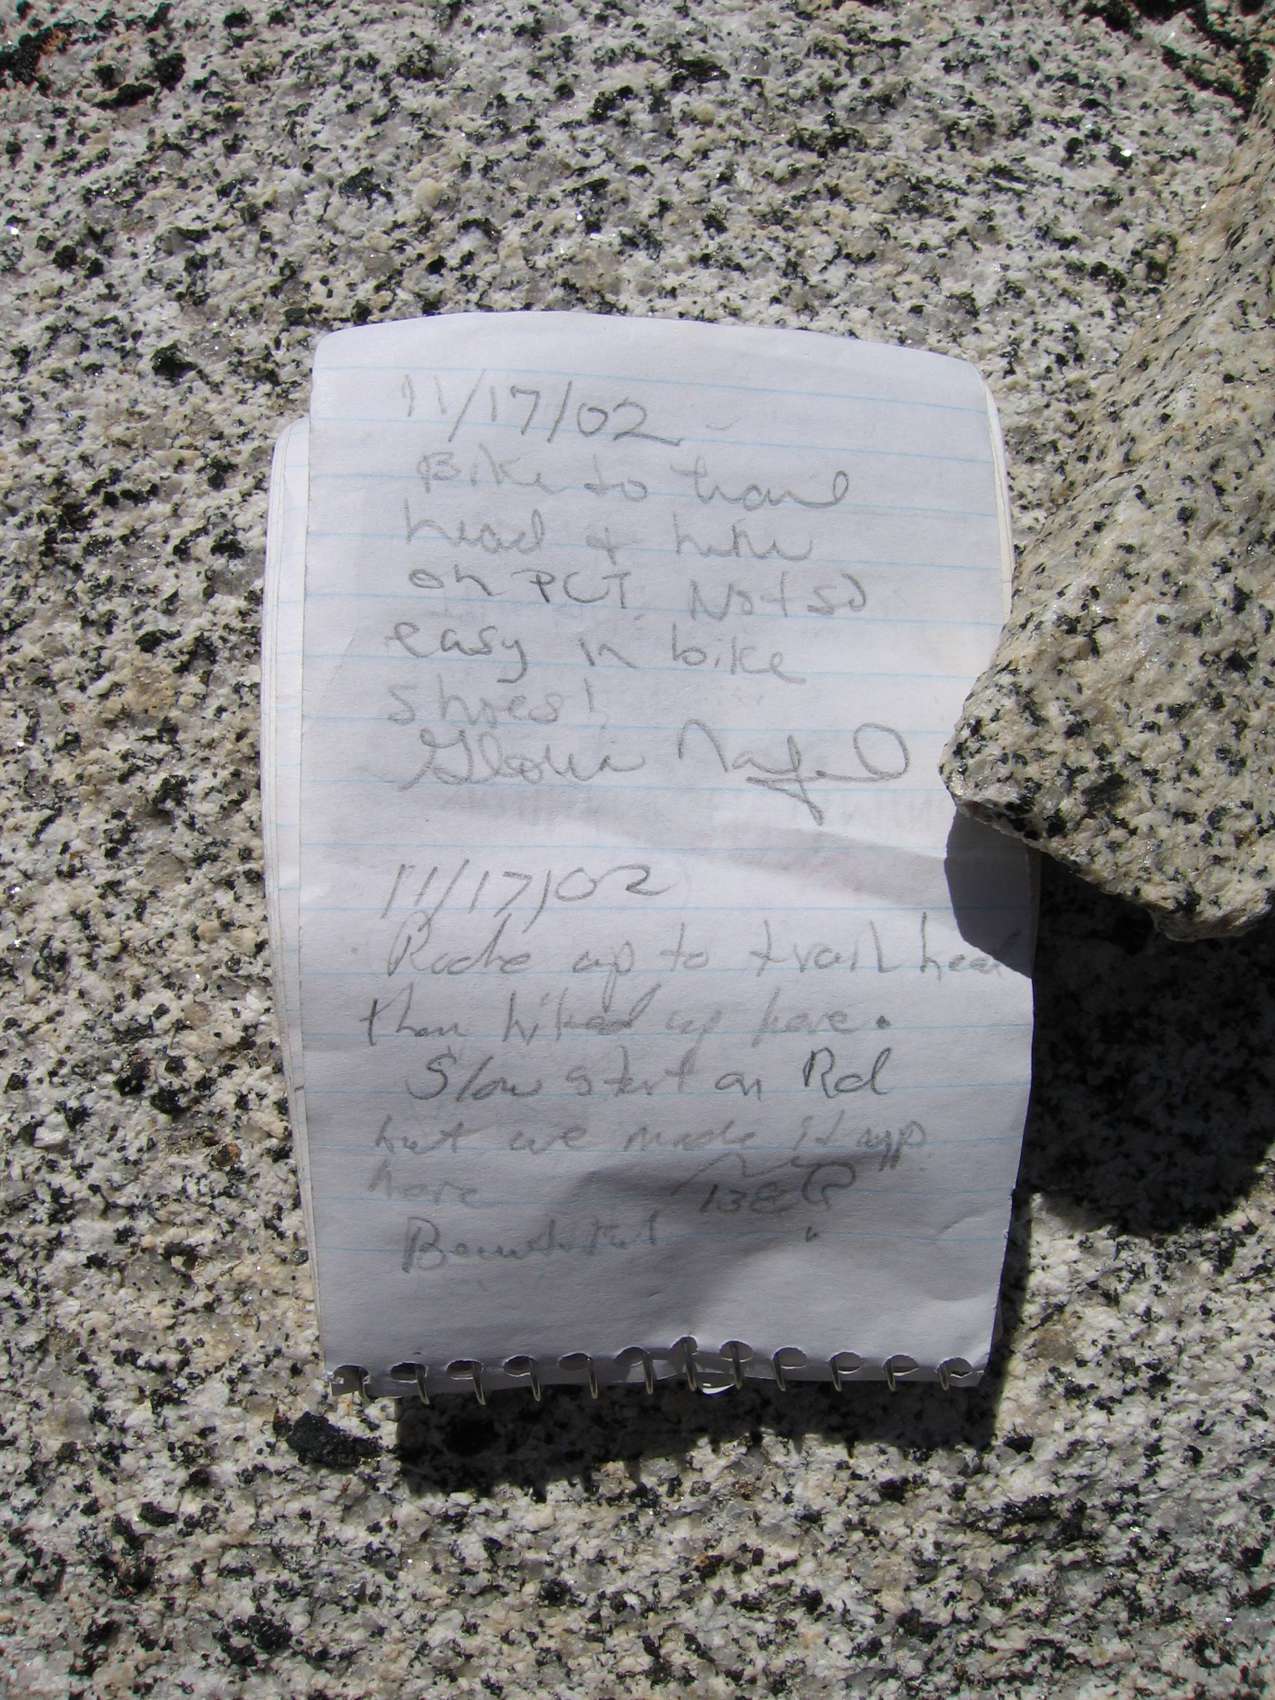 11/17/02
Bike to trail
head + hike
on PCT. Not so
easy in bike
shoes!
Gloria
11/17/02
Rode up to trail head
then hiked up here.
Slow start on Rd
but we made it up
here
Beautiful